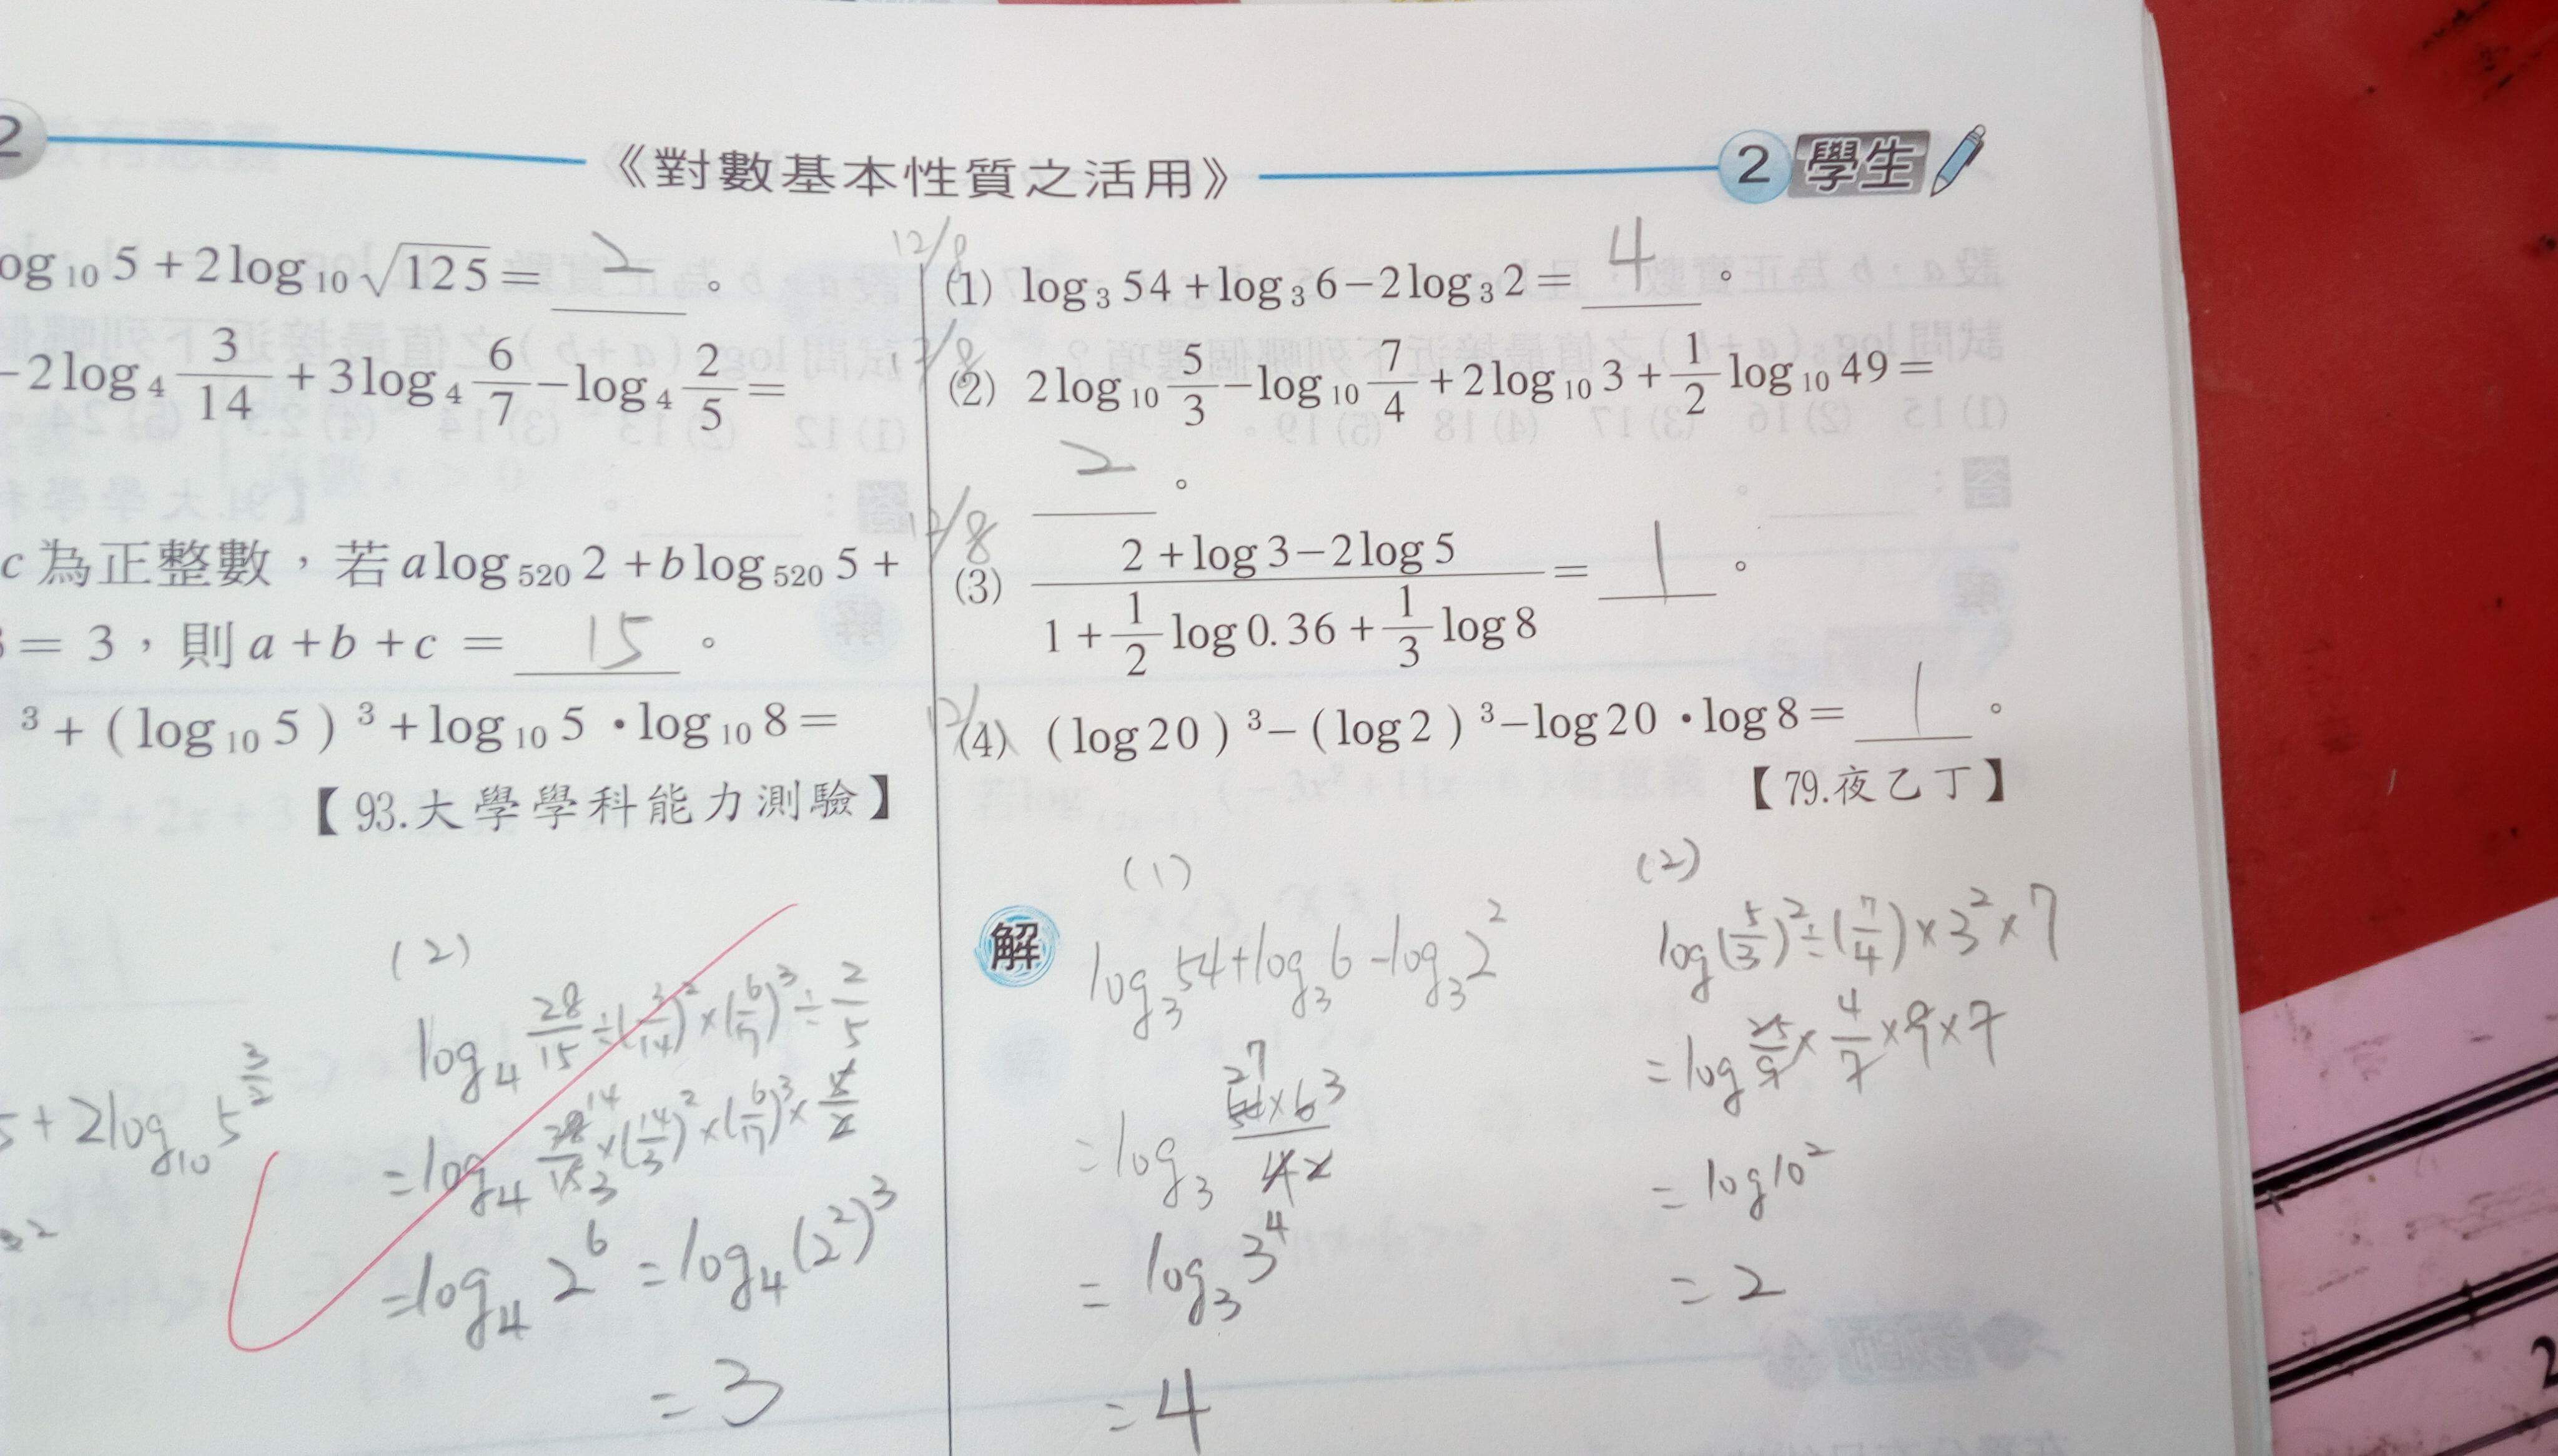 2
《對數基本性質之活用》
2 學生
og₁₀ 5 + 2 log₁₀ √125 = 2 。
−2 log₄ 3/14 + 3 log₄ 6/7 − log₄ 2/5 =
c 為正整數，若 a log₅₂₀ 2 + b log₅₂₀ 5 +
= 3，則 a + b + c = 15 。
³ + ( log₁₀ 5 ) ³ + log₁₀ 5 · log₁₀ 8 =
【93.大學學科能力測驗】
(2)
log₄ 28/15 ÷ (3/14)² × (6/7)³ ÷ 2/5
= log₄ 28/15 × (14/3)² × (6/7)³ × 5/2
14
3
= log₄ 2⁶ = log₄ (2²)³
= 3
5 + 2 log₁₀ 5^(3/2)
12/8
(1) log₃ 54 + log₃ 6 − 2 log₃ 2 = 4 。
12/8
(2) 2 log₁₀ 5/3 − log₁₀ 7/4 + 2 log₁₀ 3 + 1/2 log₁₀ 49 =
2 。
12/8
(3) (2 + log 3 − 2 log 5)/(1 + 1/2 log 0.36 + 1/3 log 8) = 1 。
12/
(4) ( log 20 ) ³ − ( log 2 ) ³ − log 20 · log 8 = 1 。
【79.夜乙丁】
解
(1)
log₃ 54 + log₃ 6 − log₃ 2²
27
= log₃ (54 × 6 3)/(4 2)
= log₃ 3⁴
= 4
(2)
log (5/3)² ÷ (7/4) × 3² × 7
= log 25/9 × 4/7 × 9 × 7
= log 10²
= 2
2